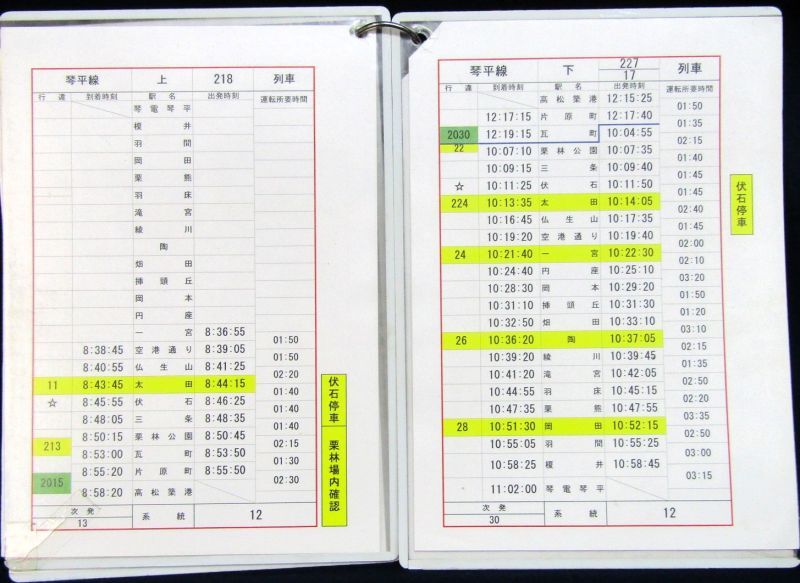 琴平線 上 218 列車
行違 到着時刻 駅名 出発時刻 運転所要時間
琴電琴平
榎井
羽間
岡田
栗熊
羽床
滝宮
綾川
陶
畑田
挿頭丘
岡本
円座
一宮 8:36:55
01:50
8:38:45 空港通り 8:39:05
01:50
8:40:55 仏生山 8:41:25
02:20
11 8:43:45 太田 8:44:15
01:40
☆ 8:45:55 伏石 8:46:25
01:40
8:48:05 三条 8:48:35
01:40
8:50:15 栗林公園 8:50:45
213
02:15
8:53:00 瓦町 8:53:50
01:30
8:55:20 片原町 8:55:50
2015
02:30
8:58:20 高松築港
次発 系統 12
13
伏石停車
栗林場内確認
琴平線 下 227 列車
17
行違 到着時刻 駅名 出発時刻 運転所要時間
高松築港 12:15:25
01:50
12:17:15 片原町 12:17:40
01:35
2030 12:19:15 瓦町 10:04:55
02:15
22 10:07:10 栗林公園 10:07:35
01:40
10:09:15 三条 10:09:40
01:45
☆ 10:11:25 伏石 10:11:50
01:45
224 10:13:35 太田 10:14:05
02:40
10:16:45 仏生山 10:17:35
01:45
10:19:20 空港通り 10:19:40
02:00
24 10:21:40 一宮 10:22:30
02:10
10:24:40 円座 10:25:10
03:20
10:28:30 岡本 10:29:20
01:50
10:31:10 挿頭丘 10:31:30
01:20
10:32:50 畑田 10:33:10
03:10
26 10:36:20 陶 10:37:05
02:15
10:39:20 綾川 10:39:45
01:35
10:41:20 滝宮 10:42:05
02:50
10:44:55 羽床 10:45:15
02:20
10:47:35 栗熊 10:47:55
03:35
28 10:51:30 岡田 10:52:15
02:50
10:55:05 羽間 10:55:25
03:00
10:58:25 榎井 10:58:45
03:15
11:02:00 琴電琴平
次発 系統 12
30
伏石停車